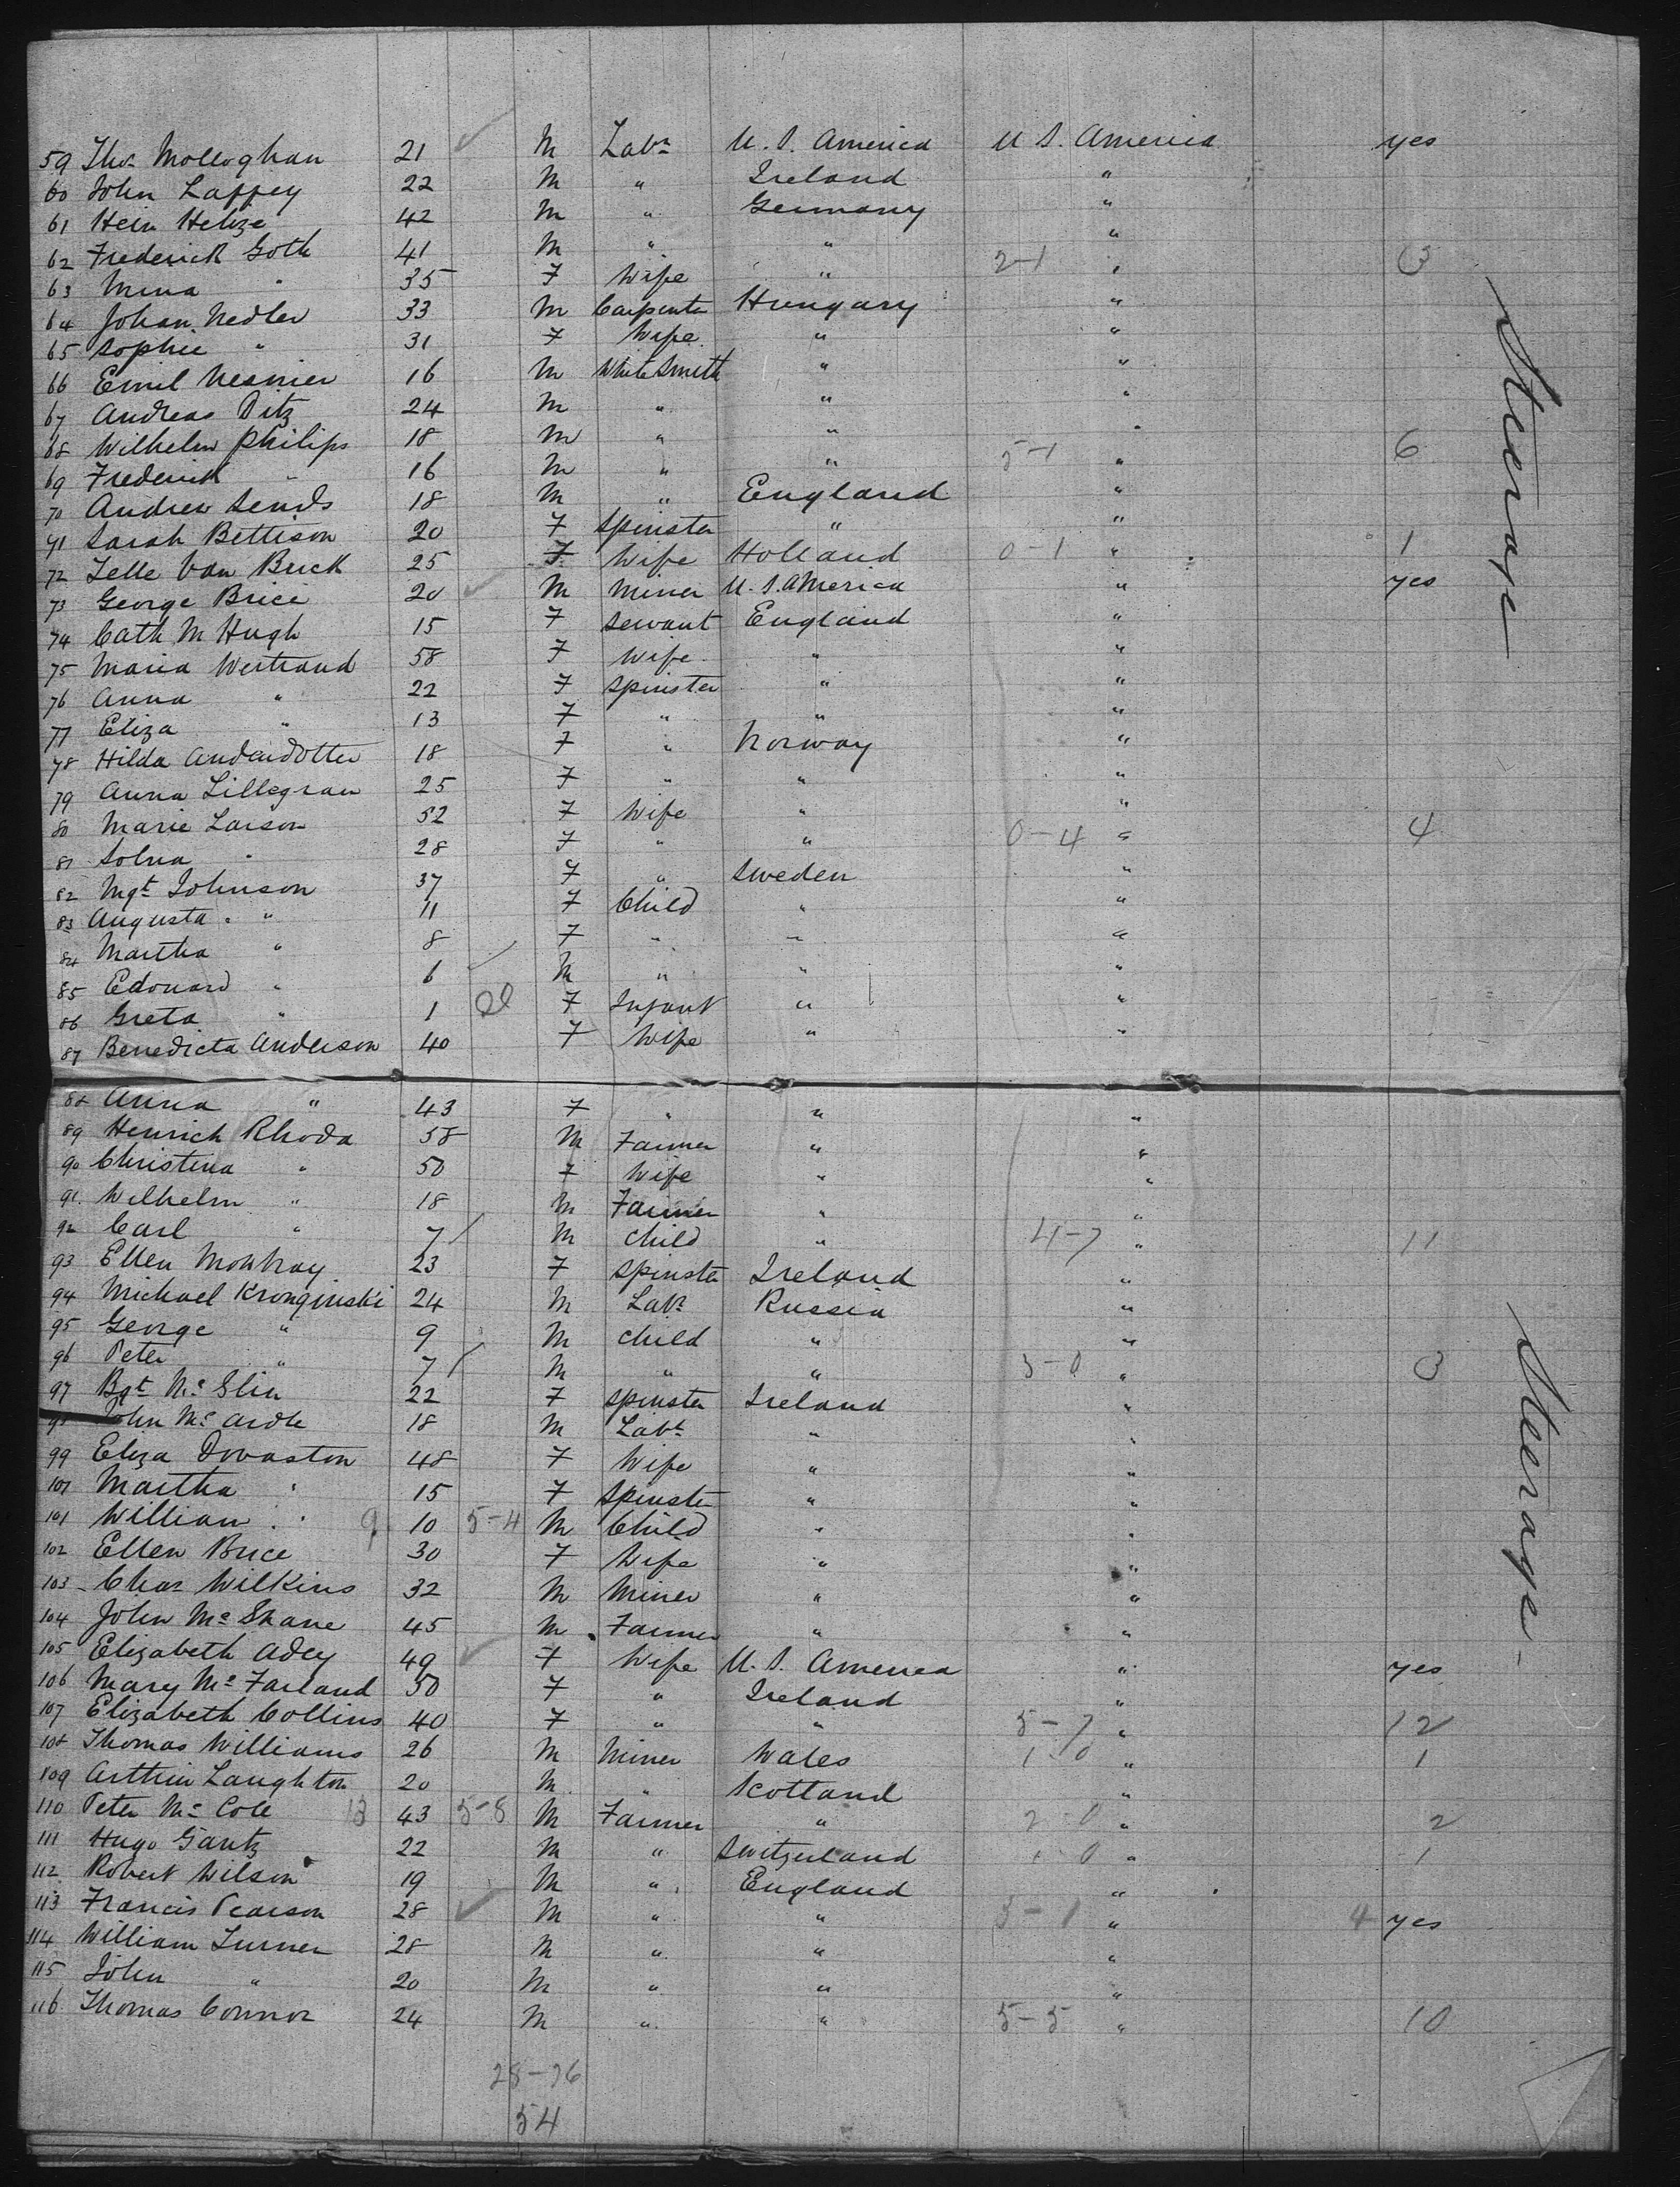 59 Thos Molloghan 21 M Labr U. S. America U S. America yes
60 John Laffey 22 M " Ireland "
61 Hein Helize 42 M " Germany "
62 Frederick Goth 41 M " " "
63 Mina " 35 F Wife " 2-1 " 3
64 Johan Nedler 33 M Carpenter Hungary "
65 Sophie " 31 F Wife " "
66 Emil Nesnier 16 M White Smith " "
67 Andreas Ditz 24 M " " "
68 Wilhelm Philips 18 M " " "
69 Frederick " 16 M " " 5-1 " 6
70 Andrew 18 M " England "
71 Sarah Bettison 20 F Spinster " "
72 Jelle Van Brick 25 F Wife Holland 0-1 " 1
73 George Brice 20 M Miner U. S. America " yes
74 Cath M Hugh 15 F Servant England "
75 Maria Wertrand 58 F Wife " "
76 Anna " 22 F Spinster " "
77 Eliza " 13 F " " "
78 Hilda Andardotter 18 F " Norway "
79 Anna Lillegran 25 F " " "
80 Marie Larson 52 F Wife " "
81 Solna " 28 F " " 0-4 " 4
82 Mgt Johnson 37 F " Sweden "
83 Augusta " 11 F Child " "
84 Martha " 8 F " " "
85 Edouard " 6 M " " "
86 Greta " 1 F Infant " "
87 Benedicta Anderson 40 F Wife " "
88 Anna " 43 F " " "
89 Henrich Rhoda 58 M Farmer " "
90 Christina " 50 F Wife " "
91 Wilhelm " 18 M Farmer " "
92 Carl " 7 M Child " 4-7 " 11
93 Ellen 23 F Spinster Ireland "
94 Michael Kronginski 24 M Labr Russia "
95 George " 9 M Child " "
96 Peter " 7 M " " 3-0 " 3
97 Bgt Mc Slin 22 F Spinster Ireland "
98 John Mc Ardle 18 M Labr " "
99 Eliza Dovaston 48 F Wife " "
100 Martha " 15 F Spinster " "
101 William " 9 10 5-4 M Child " "
102 Ellen Brice 30 F Wife " "
103 Chas Wilkins 32 M Miner " "
104 John Mc Shane 45 M Farmer " "
105 Elizabeth Adey 49 F Wife U. S. America " yes
106 Mary Mc Farland 50 F " Ireland "
107 Elizabeth Collins 40 F " " 5-7 " 12
108 Thomas Williams 26 M Miner Wales 1-0 " 1
109 Arthur Laughton 20 M " Scotland "
110 Peter Mc Cole 13 43 5-8 M Farmer " 2-0 " 2
111 Hugo Gantz 22 M " Switzerland 1-0 " 1
112 Robert Wilson 19 M " England "
113 Francis Pearson 28 M " " 3-1 " 4 yes
114 William Turner 28 M " " "
115 John " 20 M " " "
116 Thomas Connor 24 M " " 5-5 " 10
28-26
54
Steerage
Steerage